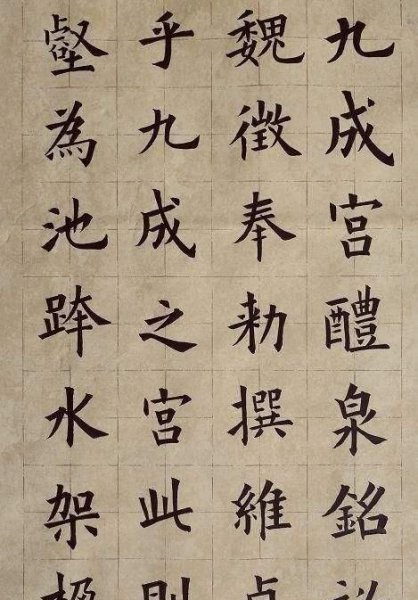 九成宮醴泉銘
魏徵奉勅撰維
乎九成之宮此
壑為池跨水架